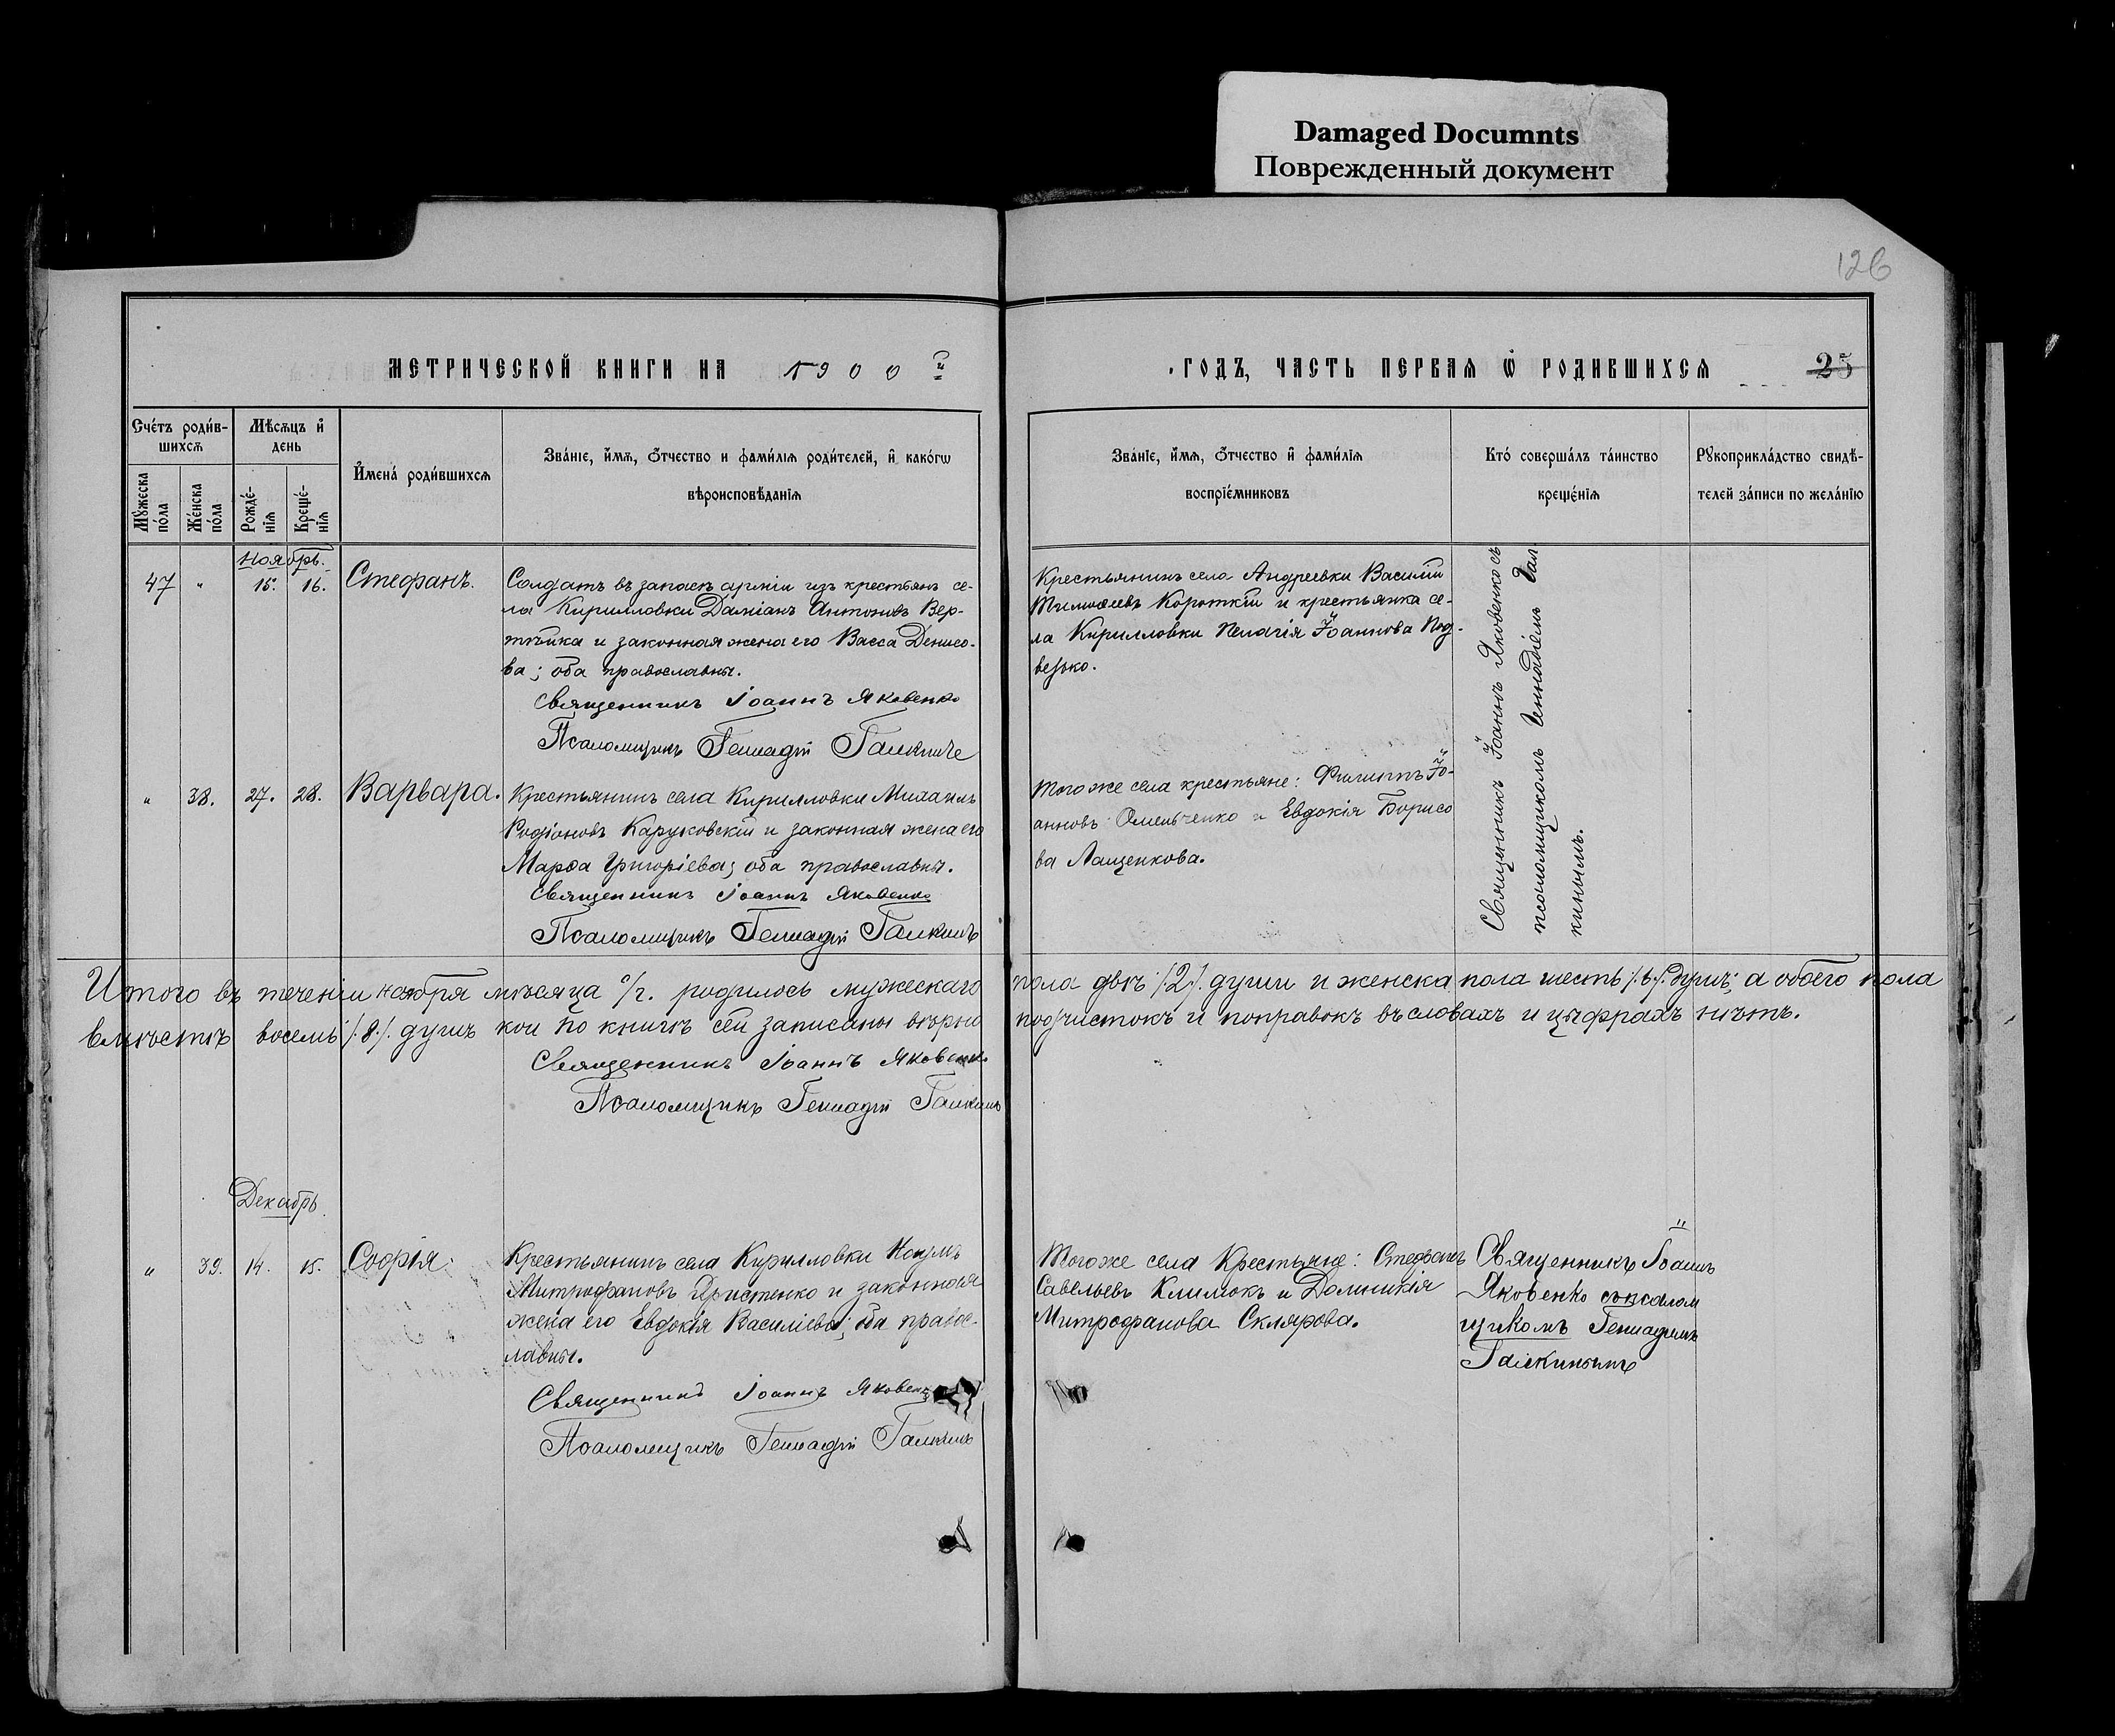 Damaged Documnts
Поврежденный документ
126
МЕТРИЧЕСКОЙ КНИГИ НА 1900 й
ГОДЪ, ЧАСТЬ ПЕРВАѦ Ѡ РОДИВШИХСѦ
25
Счétъ родив-
шихсѧ
Мѣсѧцъ и
день
Имена родившихсѧ
Званїе, имѧ, ѻтчество и фамилїѧ родителей, и какогѡ
вѣроисповѣданїѧ
Мужеска
пола
Женска
пола
Рожде-
нїѧ
Креще-
нїѧ
Званїе, имѧ, ѻтчество и фамилїѧ
воспрїемниковъ
Кто совершалъ таинство
крещенїѧ
Рукоприкладство свидѣ-
телей записи по желанїю
Ноябрь.
47 " 15. 16. Стефанъ.
Солдатъ въ запасѣ арміи изъ крестьянъ се-
ла Кирилловки Даміанъ Антоновъ Вер-
и законная жена его Васса Денисо-
ва; оба православны.
Священникъ Іоаннъ Яковенко
Псаломщикъ Геннадій Галкинъ
Крестьянинъ села Андреевки Василій
Тимоѳеевъ Короткій и крестьянка се-
ла Кирилловки Пелагія Іоаннова Под-
Священникъ Іоаннъ Яковенко съ
псаломщикомъ Геннадіемъ Гал
кинымъ.
" 38. 27. 28. Варвара.
Крестьянинъ села Кирилловки Михаилъ
Родіоновъ Каруковскій и законная жена его
Марѳа Григоріева; оба православны.
Священникъ Іоаннъ Яковенко
Псаломщикъ Геннадій Галкинъ
Того же села крестьяне: Филиппъ Іо-
анновъ Омельченко и Евдокія Борисо
ва Лащенкова.
Итого въ теченіи ноября мѣсяца с/г. родилось мужескаго пола двѣ /2/. души и женска пола шесть /.6/. душъ; а обоего пола
вмѣстѣ восемь /.8/. душъ кои по книгѣ сей записаны вѣрно подчистокъ и поправокъ въ словахъ и цыфрахъ нѣтъ.
Священникъ Іоаннъ Яковенко
Псаломщикъ Геннадій Галкинъ
Декабрь.
" 39. 14. 15. Софія.
Крестьянинъ села Кирилловки Наумъ
Митрофановъ Христенко и законная
жена его Евдокія Василіева; оба правос-
лавны.
Священникъ Іоаннъ Яковенко
Псаломщикъ Геннадій Галкинъ
Того же села Крестьяне: Стефанъ
Савельевъ Климокъ и Домникія
Митрофанова Склярова.
Священникъ Іоаннъ
Яковенко съ псалом
щикомъ Геннадіемъ
Галкинымъ